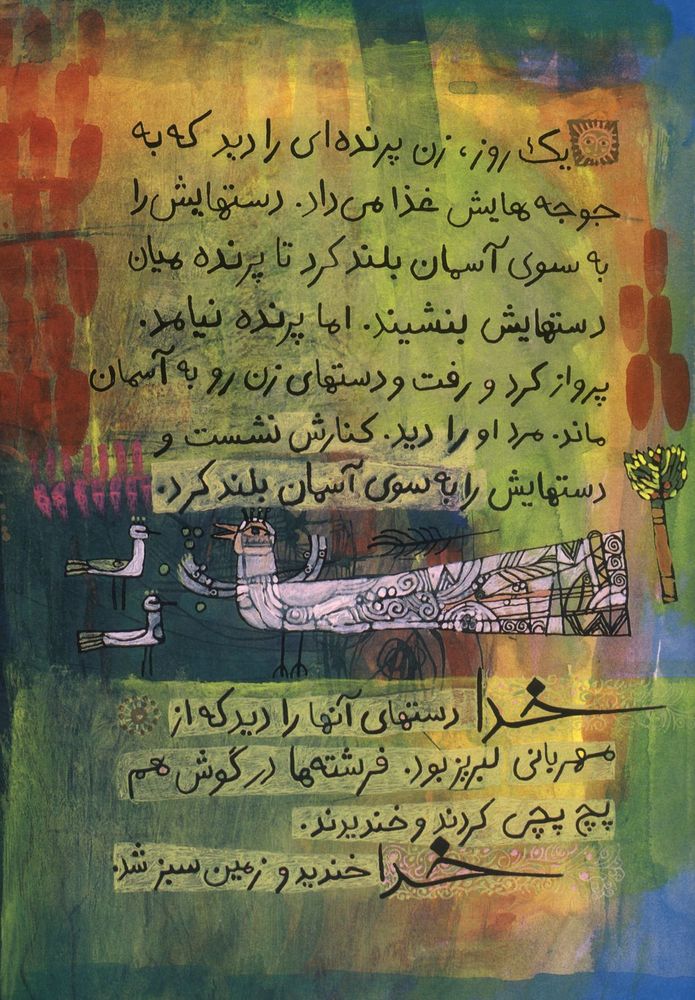 یک روز، زن پرنده‌ای را دید که به
جوجه هایش غذا می‌داد. دستهایش را
به سوی آسمان بلند کرد تا پرنده میان
دستهایش بنشیند. اما پرنده نیامد.
پرواز کرد و رفت و دستهای زن رو به آسمان
ماند. مرد او را دید. کنارش نشست و
دستهایش را به سوی آسمان بلند کرد.
خدا دستهای آنها را دید که از
مهربانی لبریز بود. فرشته‌ها در گوش هم
پچ پچی کردند و خندیدند.
خدا خندید و زمین سبز شد.